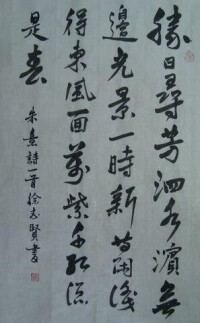 勝日尋芳泗水濱無
邊光景一時新等閒識
得東風面萬紫千紅總
是春
朱熹詩一首徐志賢書